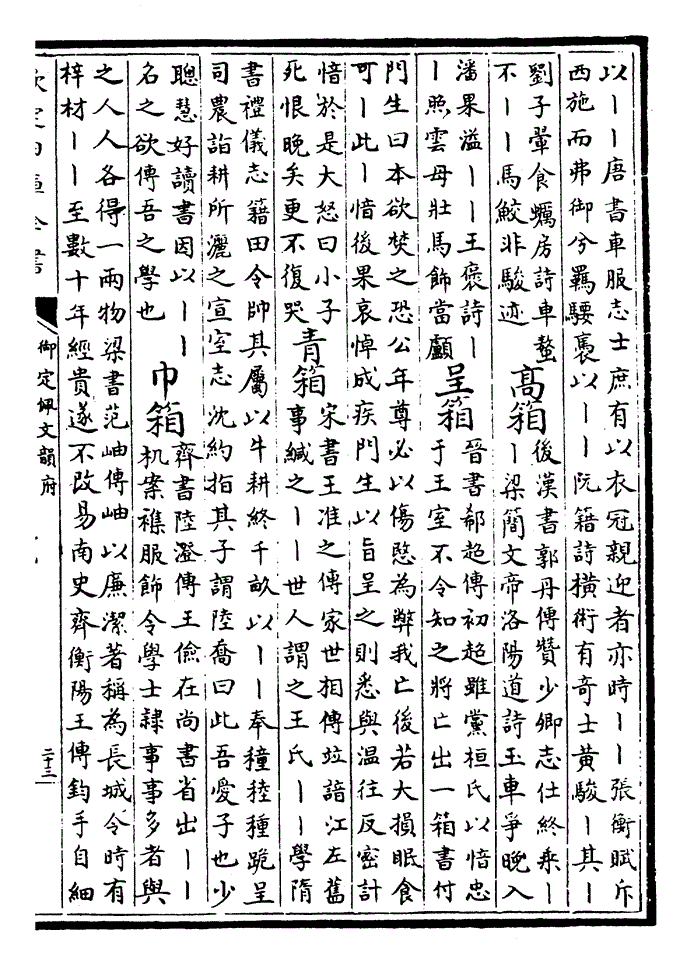 以丨丨唐書車服志士庶有以衣冠親迎者亦時丨丨張衡賦斥
西施而弗御兮羈騕褭以丨丨阮籍詩橫術有奇士黃駿丨其丨
劉子翬食蠣房詩車螯
不丨丨馬鮫非駿迹
高箱
後漢書郭丹傳贊少卿志仕終乘丨
丨梁簡文帝洛陽道詩玉車爭晚入
潘果溢丨丨王褒詩丨
丨照雲母壯馬飾當顱
呈箱
晉書郗超傳初超雖黨桓氏以愔忠
于王室不令知之將亡出一箱書付
門生曰本欲焚之恐公年尊必以傷愍為弊我亡後若大損眠食
可丨此丨愔後果哀悼成疾門生以旨呈之則悉與温往反密計
愔於是大怒曰小子
死恨晚矣更不復哭
青箱
宋書王准之傳家世相傳竝諳江左舊
事緘之丨丨世人謂之王氏丨丨學隋
書禮儀志籍田令帥其屬以牛耕終千畝以丨丨奉穜稑種跪呈
司農詣耕所灑之宣室志沈約指其子謂陸喬曰此吾愛子也少
聰慧好讀書因以丨丨
名之欲傳吾之學也
巾箱
齊書陸澄傳王儉在尚書省出丨丨
机案襍服飾令學士隸事事多者與
之人人各得一兩物梁書范岫傳岫以廉潔著稱為長城令時有
梓材丨丨至數十年經貴遂不改易南史齊衡陽王傳鈞手自細
欽定四庫全書
御定佩文韻府
二十三